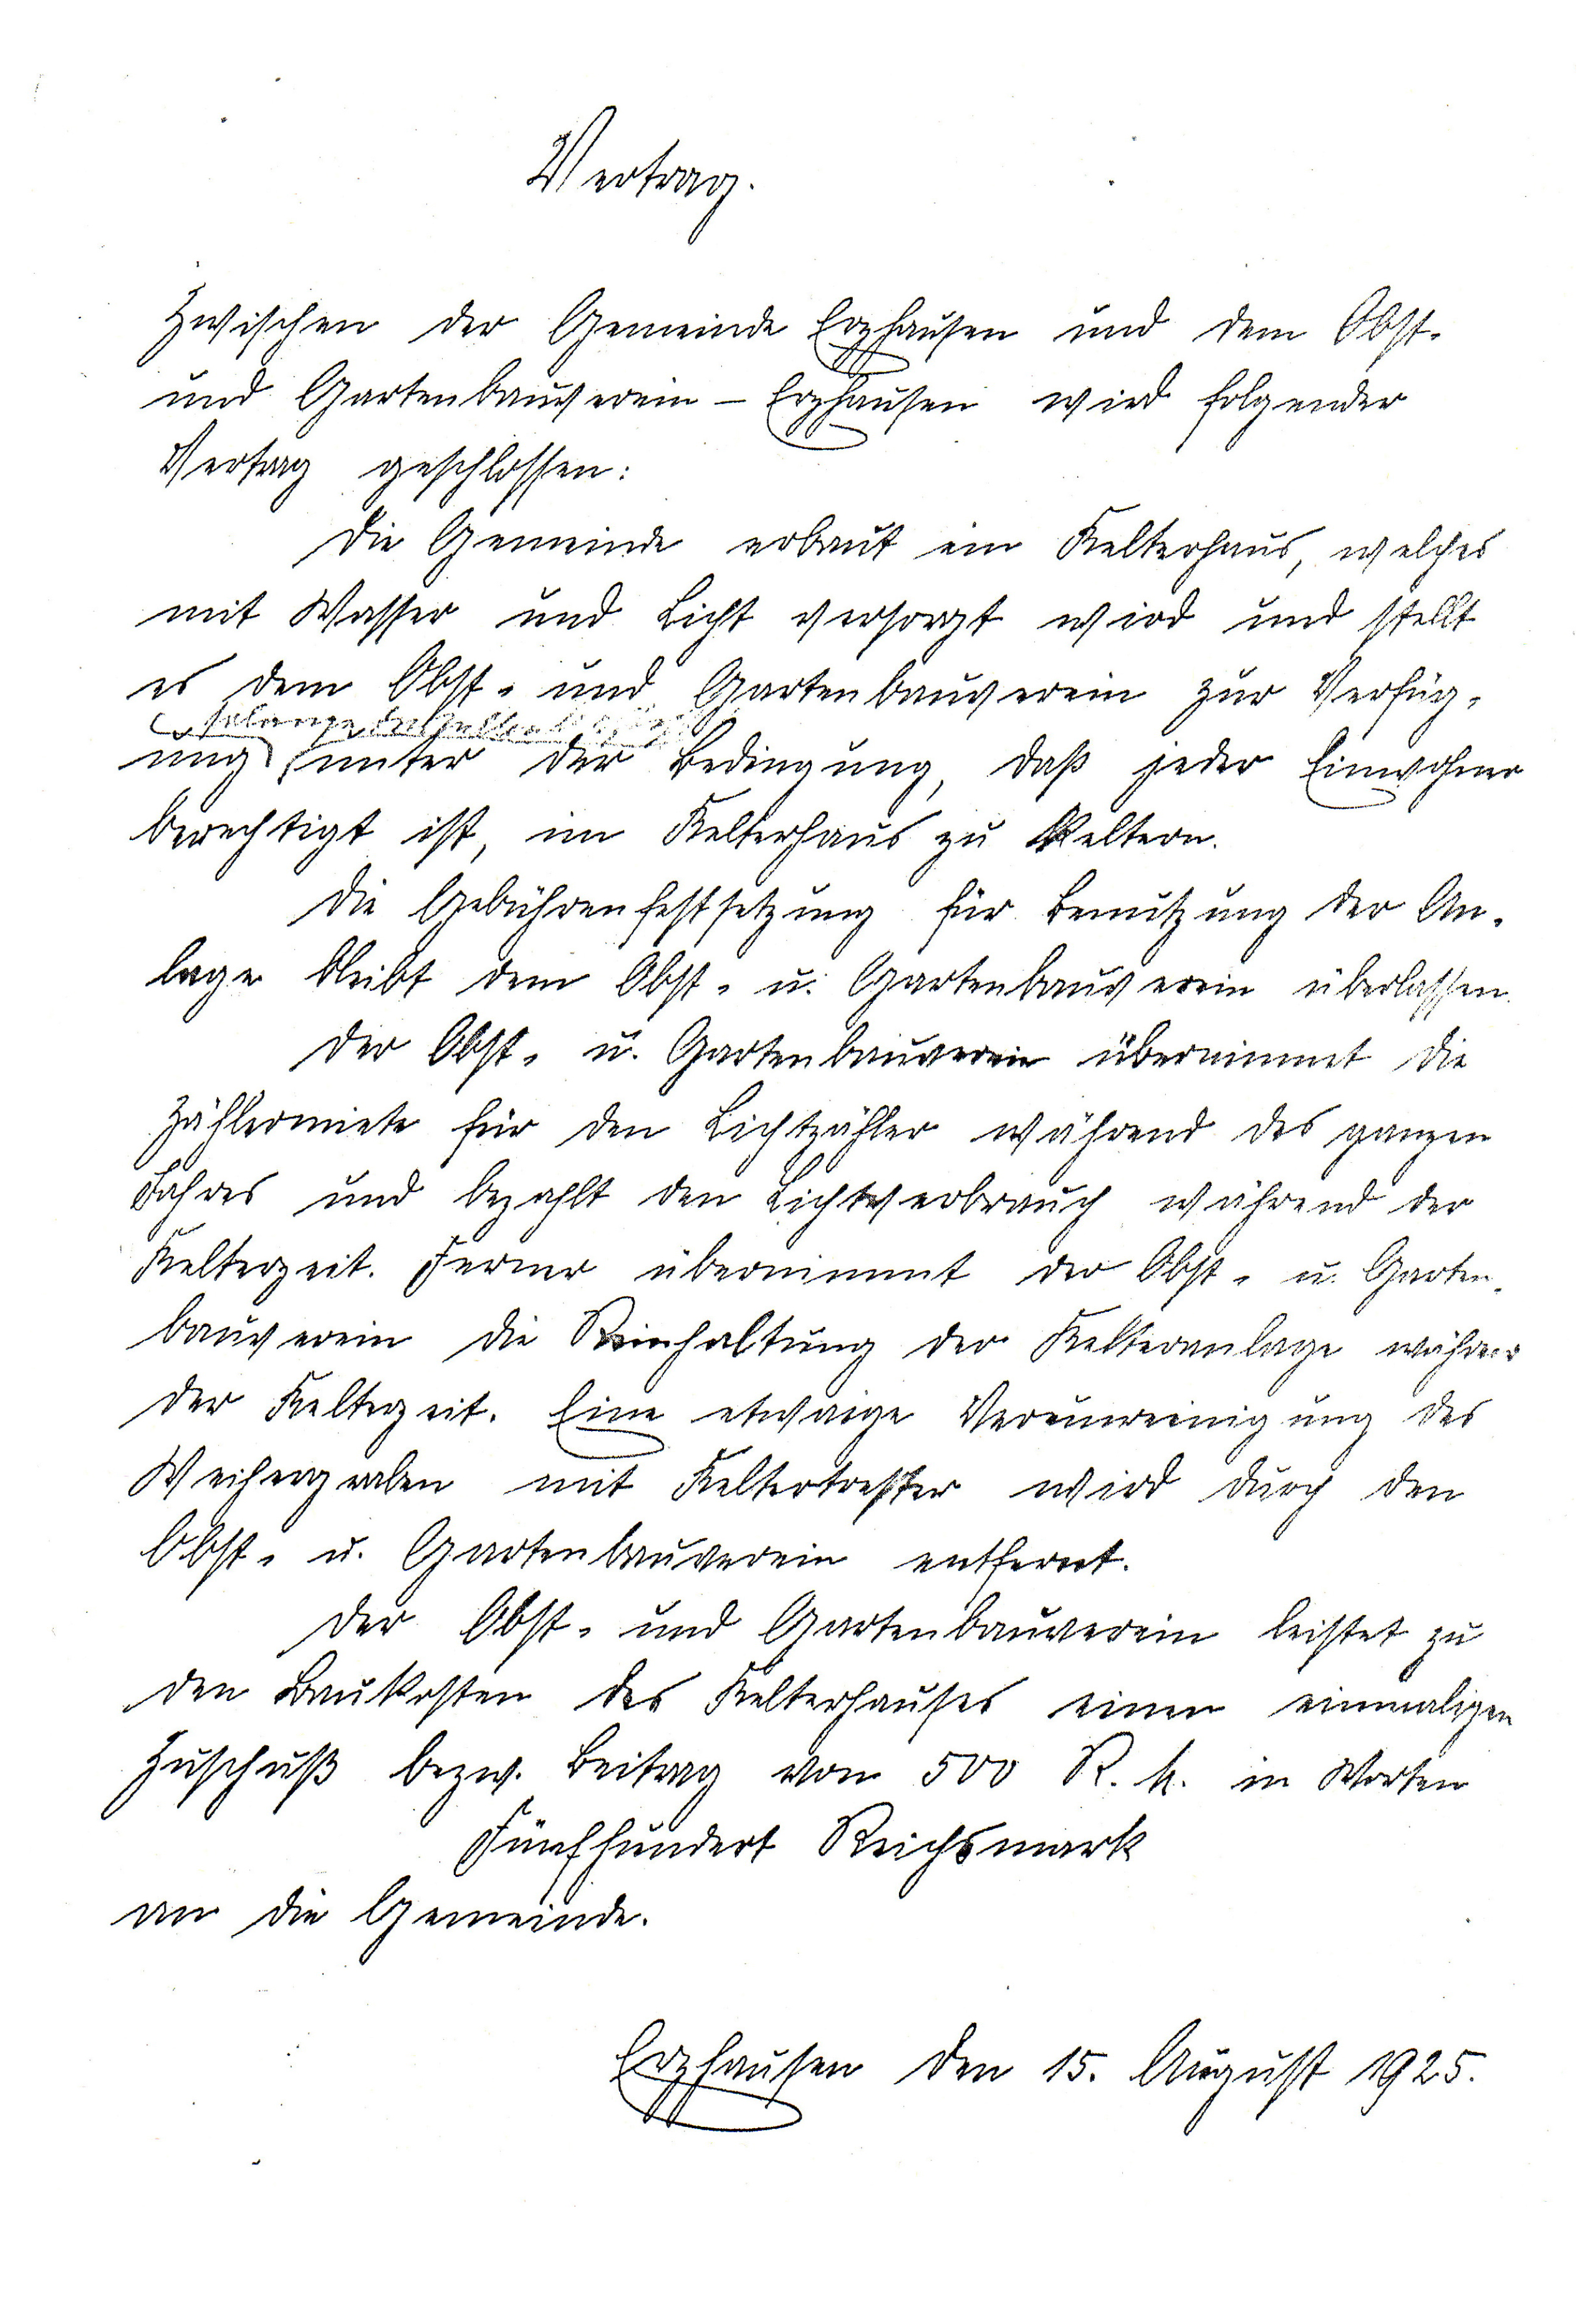 Vertrag.
Zwischen der Gemeinde Erzhausen und dem Obst-
und Gartenbauverein – Erzhausen wird folgender
Vertrag geschlossen:
Die Gemeinde erbaut ein Kelterhaus, welches
mit Wasser und Licht versorgt wird und stellt
es dem Obst- und Gartenbauverein zur Verfüg-
solange
ung unter der Bedingung, daß jeder Einwohner
berechtigt ist, im Kelterhaus zu Keltern.
Die Gebührenfestsetzung für Benutzung der An-
lage bleibt dem Obst- u. Gartenbauverein überlassen.
Der Obst- u. Gartenbauverein übernimmt die
Zählermiete für den Lichtzähler während des ganzen
Jahres und bezahlt den Lichtverbrauch während der
Kelterzeit. Ferner übernimmt der Obst- u. Garten-
bauverein die Reinhaltung der Kelteranlage während
der Kelterzeit. Eine etwaige Verunreinigung des
Weihergraben mit Keltertrester wird durch den
Obst- u. Gartenbauverein entfernt.
Der Obst- und Gartenbauverein leistet zu
den Baukosten des Kelterhauses einen einmaligen
Zuschuß bezw. Beitrag von 500 R. M. in Worten
Fünfhundert Reichsmark
an die Gemeinde.
Erzhausen den 15. August 1925.